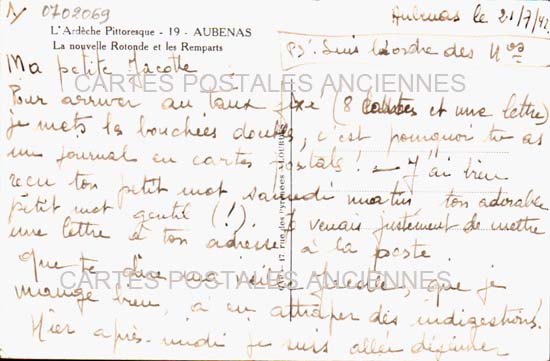 0702069
Aubenas le 21/7/42
L'Ardèche Pittoresque - 19 - AUBENAS
La nouvelle Rotonde et les Remparts
PS. Suis l'ordre des Nos
Ma petite Jacotte
CARTES POSTALES ANCIENNES
Pour arriver au taux fixé (8 cartes et une lettre)
je mets les bouchées doubles, c'est pourquoi tu as
un journal en cartes postales ! - J'ai bien
reçu ton petit mot samedi matin ton adorable
petit mot gentil (!) Je venais justement de mettre
une lettre à ton adresse à la poste.
17 rue des Pyrénées LOURDES
Que te dire ma Jacotte, que je
CARTES POSTALES ANCIENNES
mange bien, à en attraper des indigestions!
Hier après-midi je suis allée déjeuner